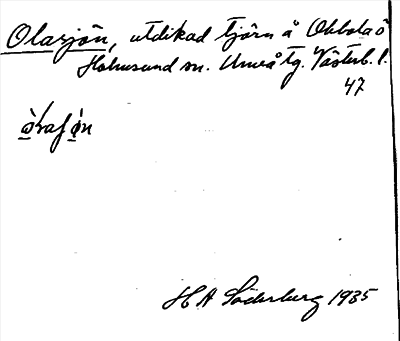 Olasjön, utdikad tjörn å Obbolaö
Holmsund sn. Umeå tg. Västerb. l.
47
H A Söderberg 1935